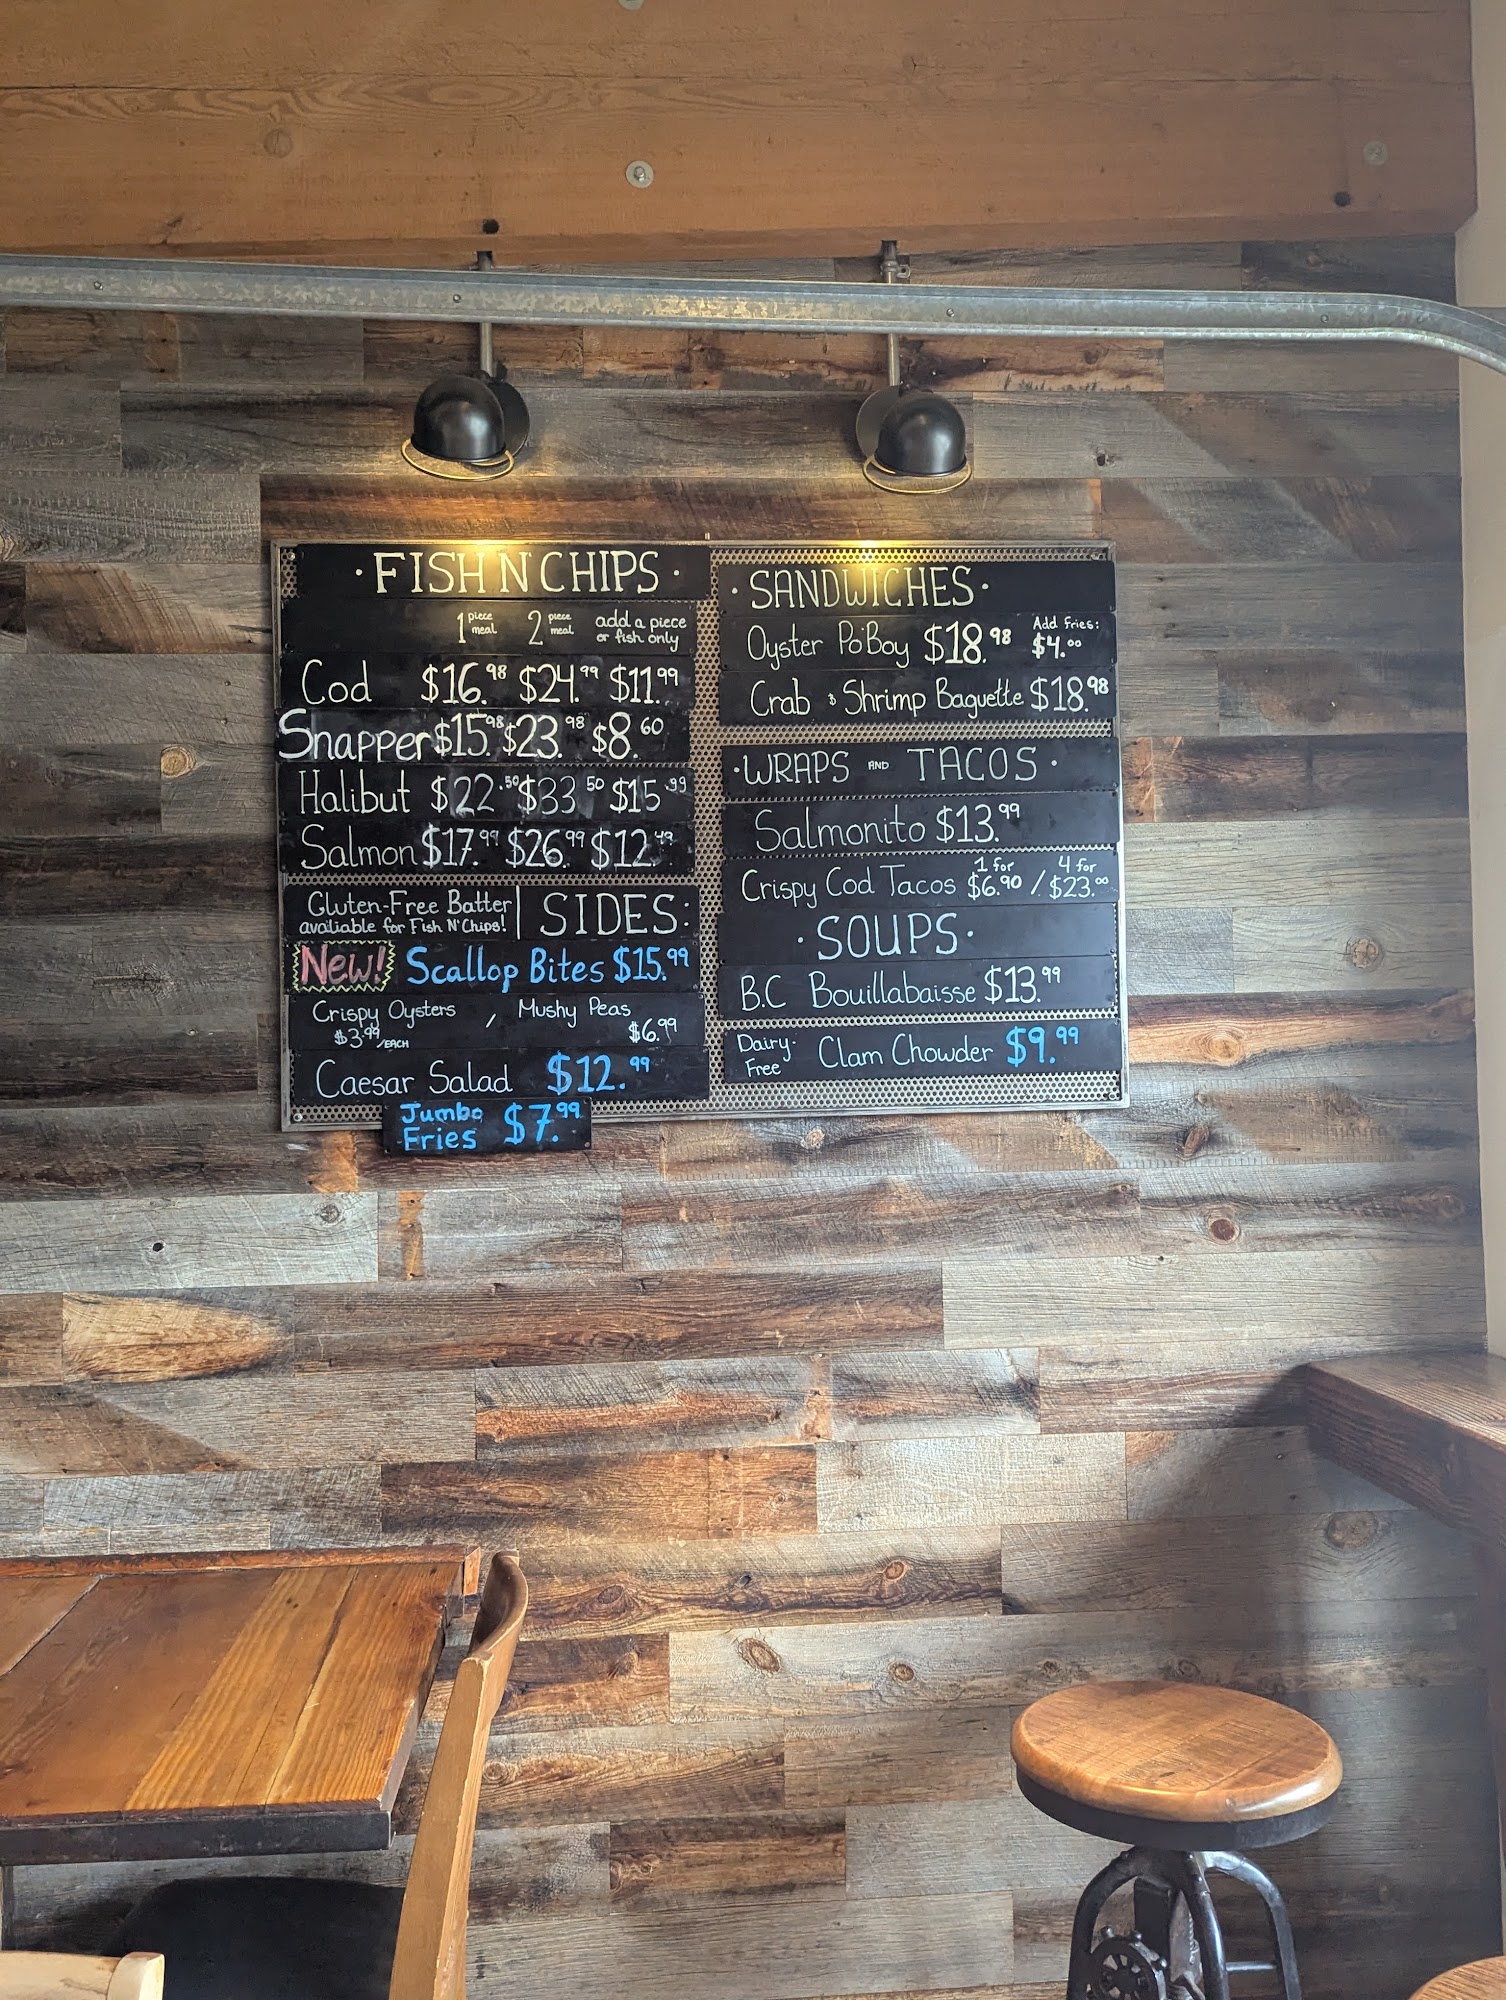 · FISH N' CHIPS ·
1 piece meal 2 piece meal add a piece or fish only
Cod $16.98 $24.99 $11.99
Snapper $15.98 $23.98 $8.60
Halibut $22.50 $33.50 $15.99
Salmon $17.99 $26.99 $12.49
Gluten-Free Batter
available for Fish N' Chips!
SIDES:
New! Scallop Bites $15.99
Crispy Oysters $3.99/EACH / Mushy Peas $6.99
Caesar Salad $12.99
Jumbo Fries $7.99
· SANDWICHES ·
Oyster Po'Boy $18.98 Add Fries: $4.00
Crab & Shrimp Baguette $18.98
· WRAPS AND TACOS ·
Salmonito $13.99
Crispy Cod Tacos 1 for $6.90 / 4 for $23.00
· SOUPS ·
B.C Bouillabaisse $13.99
Dairy-Free Clam Chowder $9.99